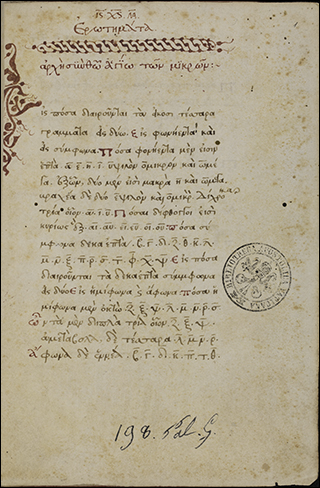 Ἐρωτήματα
ἀρχὴ σὺν Θεῷ ἁγίῳ τῶν μικρῶν:
Εἰς πόσα διαιροῦνται τὰ εἴκοσι τέσσαρα
γράμματα εἰς δύο. εἰς φωνήεντα καὶ
εἰς σύμφωνα. Πόσα φωνήεντα μέν εἰσιν
ἑπτὰ. α. ε. η. ι.
δύο μέν εἰσι μακρὰ η καὶ ω
τρία οἷον. α. ι. υ. Πόσαι δίφθογγοι εἰσὶ
κυρίως ἕξ. αι. αυ. ει. ευ. οι. ου πόσα σύ
μφωνα δεκαεπτὰ. β. γ. δ. ζ. θ. κ. λ.
μ. ν. ξ. π. ρ. σ. τ. φ. χ. ψ. Εἰς πόσα
διαιροῦνται τὰ δεκαεπτὰ σύμφωνα
εἰς δύο εἰς ἡμίφωνα καὶ ἄφωνα πόσα ἡ
μίφωνα μὲν ὀκτὼ. ζ. ξ. ψ. λ. μ. ν. ρ. σ
ὧν τὰ μὲν διπλᾶ τρία οἷον. ζ. ξ. ψ.
ἀμετάβολα δὲ τέσσαρα. λ. μ. ν. ρ.
Ἄφωνα δὲ ἐννέα. β. γ. δ. κ. π. τ. θ.
BIBLIOTHECA APOSTOLICA VATICANA
198. Pal. G.